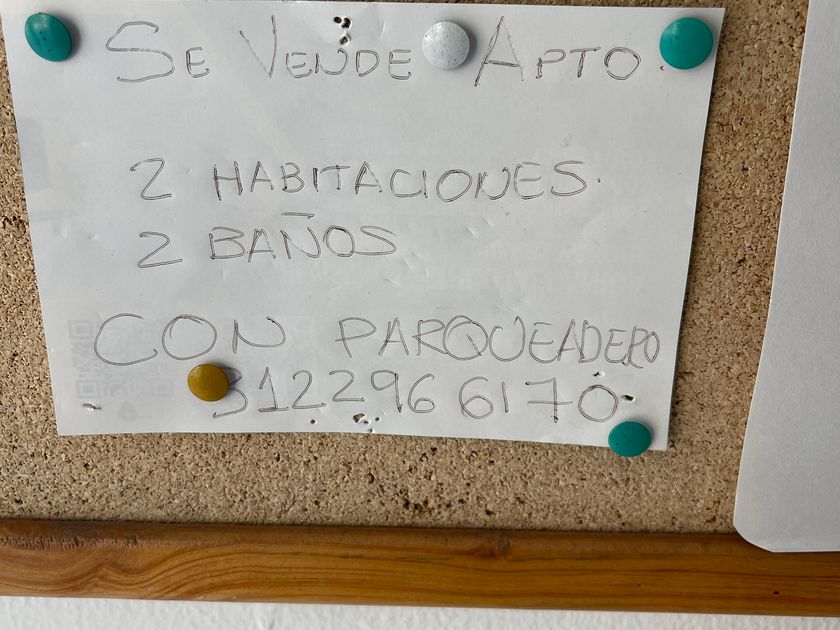 SE VENDE APTO.
2 HABITACIONES.
2 BAÑOS
CON PARQUEADERO
312296 6170